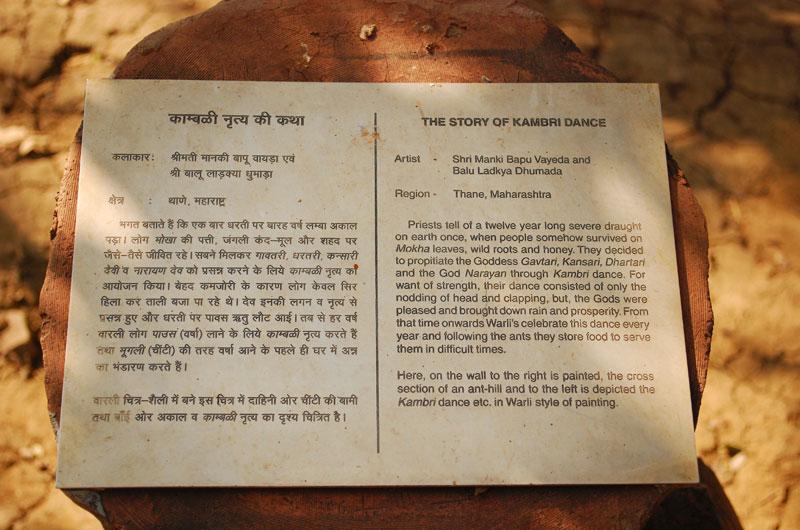 काम्बळी नृत्य की कथा
कलाकार: श्रीमती मानकी बापू वायड़ा एवं
श्री बालू लाड़क्या धुमाड़ा
क्षेत्र : थाणे, महाराष्ट्र
भगत बताते हैं कि एक बार धरती पर बारह वर्ष लम्बा अकाल
पड़ा। लोग मोखा की पत्ती, जंगली कंद-मूल और शहद पर
जैसे-तैसे जीवित रहे। सबने मिलकर गावतरी, धरतरी, कन्सारी
देवी व नारायण देव को प्रसन्न करने के लिये काम्बळी नृत्य का
आयोजन किया। बेहद कमजोरी के कारण लोग केवल सिर
हिला कर ताली बजा पा रहे थे। देव इनकी लगन व नृत्य से
प्रसन्न हुए और धरती पर पावस ऋतु लौट आई। तब से हर वर्ष
वारली लोग पाउस (वर्षा) लाने के लिये काम्बळी नृत्य करते हैं
तथा मूगली (चींटी) की तरह वर्षा आने के पहले ही घर में अन्न
का भंडारण करते हैं।
वारली चित्र-शैली में बने इस चित्र में दाहिनी ओर चींटी की बामी
तथा बाँई ओर अकाल व काम्बळी नृत्य का दृश्य चित्रित है।
THE STORY OF KAMBRI DANCE
Artist - Shri Manki Bapu Vayeda and
Balu Ladkya Dhumada
Region - Thane, Maharashtra
Priests tell of a twelve year long severe draught
on earth once, when people somehow survived on
Mokha leaves, wild roots and honey. They decided
to propitiate the Goddess Gavtari, Kansari, Dhartari
and the God Narayan through Kambri dance. For
want of strength, their dance consisted of only the
nodding of head and clapping, but, the Gods were
pleased and brought down rain and prosperity. From
that time onwards Warli's celebrate this dance every
year and following the ants they store food to serve
them in difficult times.
Here, on the wall to the right is painted, the cross
section of an ant-hill and to the left is depicted the
Kambri dance etc. in Warli style of painting.